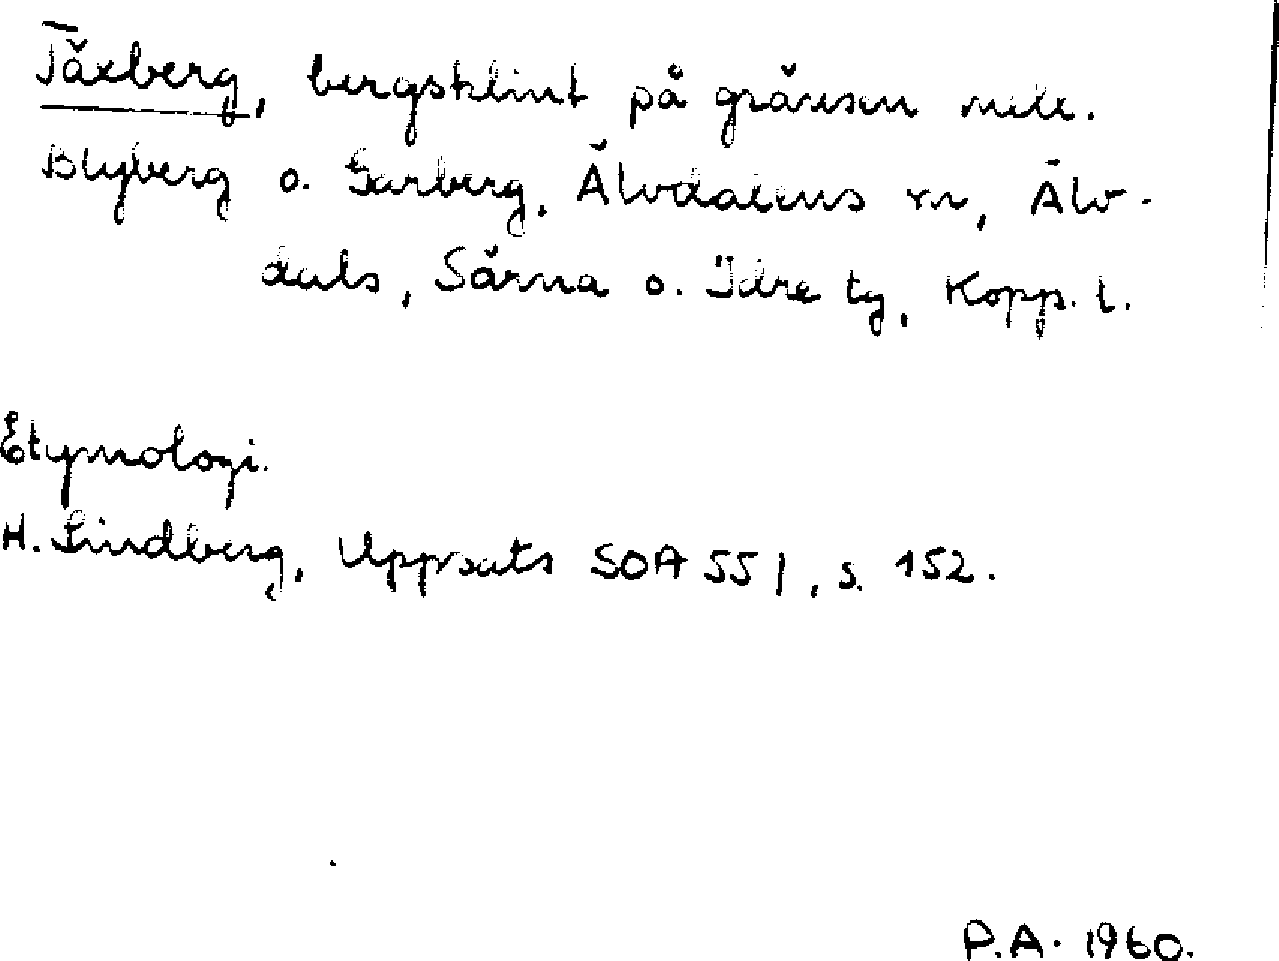 Täxberg, bergsklint på gränsen mell.
Blyberg o. Garberg, Älvdalens sn, Älv-
dals, Särna o. Idre tg, Kopp. l.
Etymologi.
H. Lindberg, Uppsats SOA 551, s. 152.
P.A. 1960.